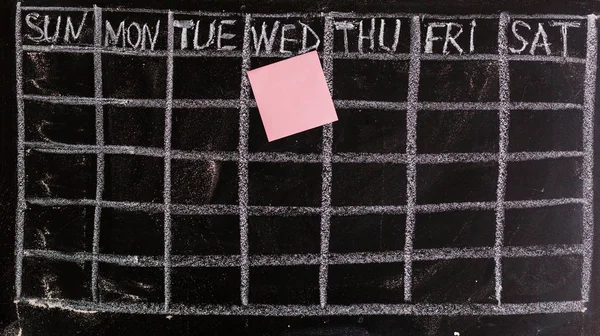 SUN MON TUE WED THU FRI SAT